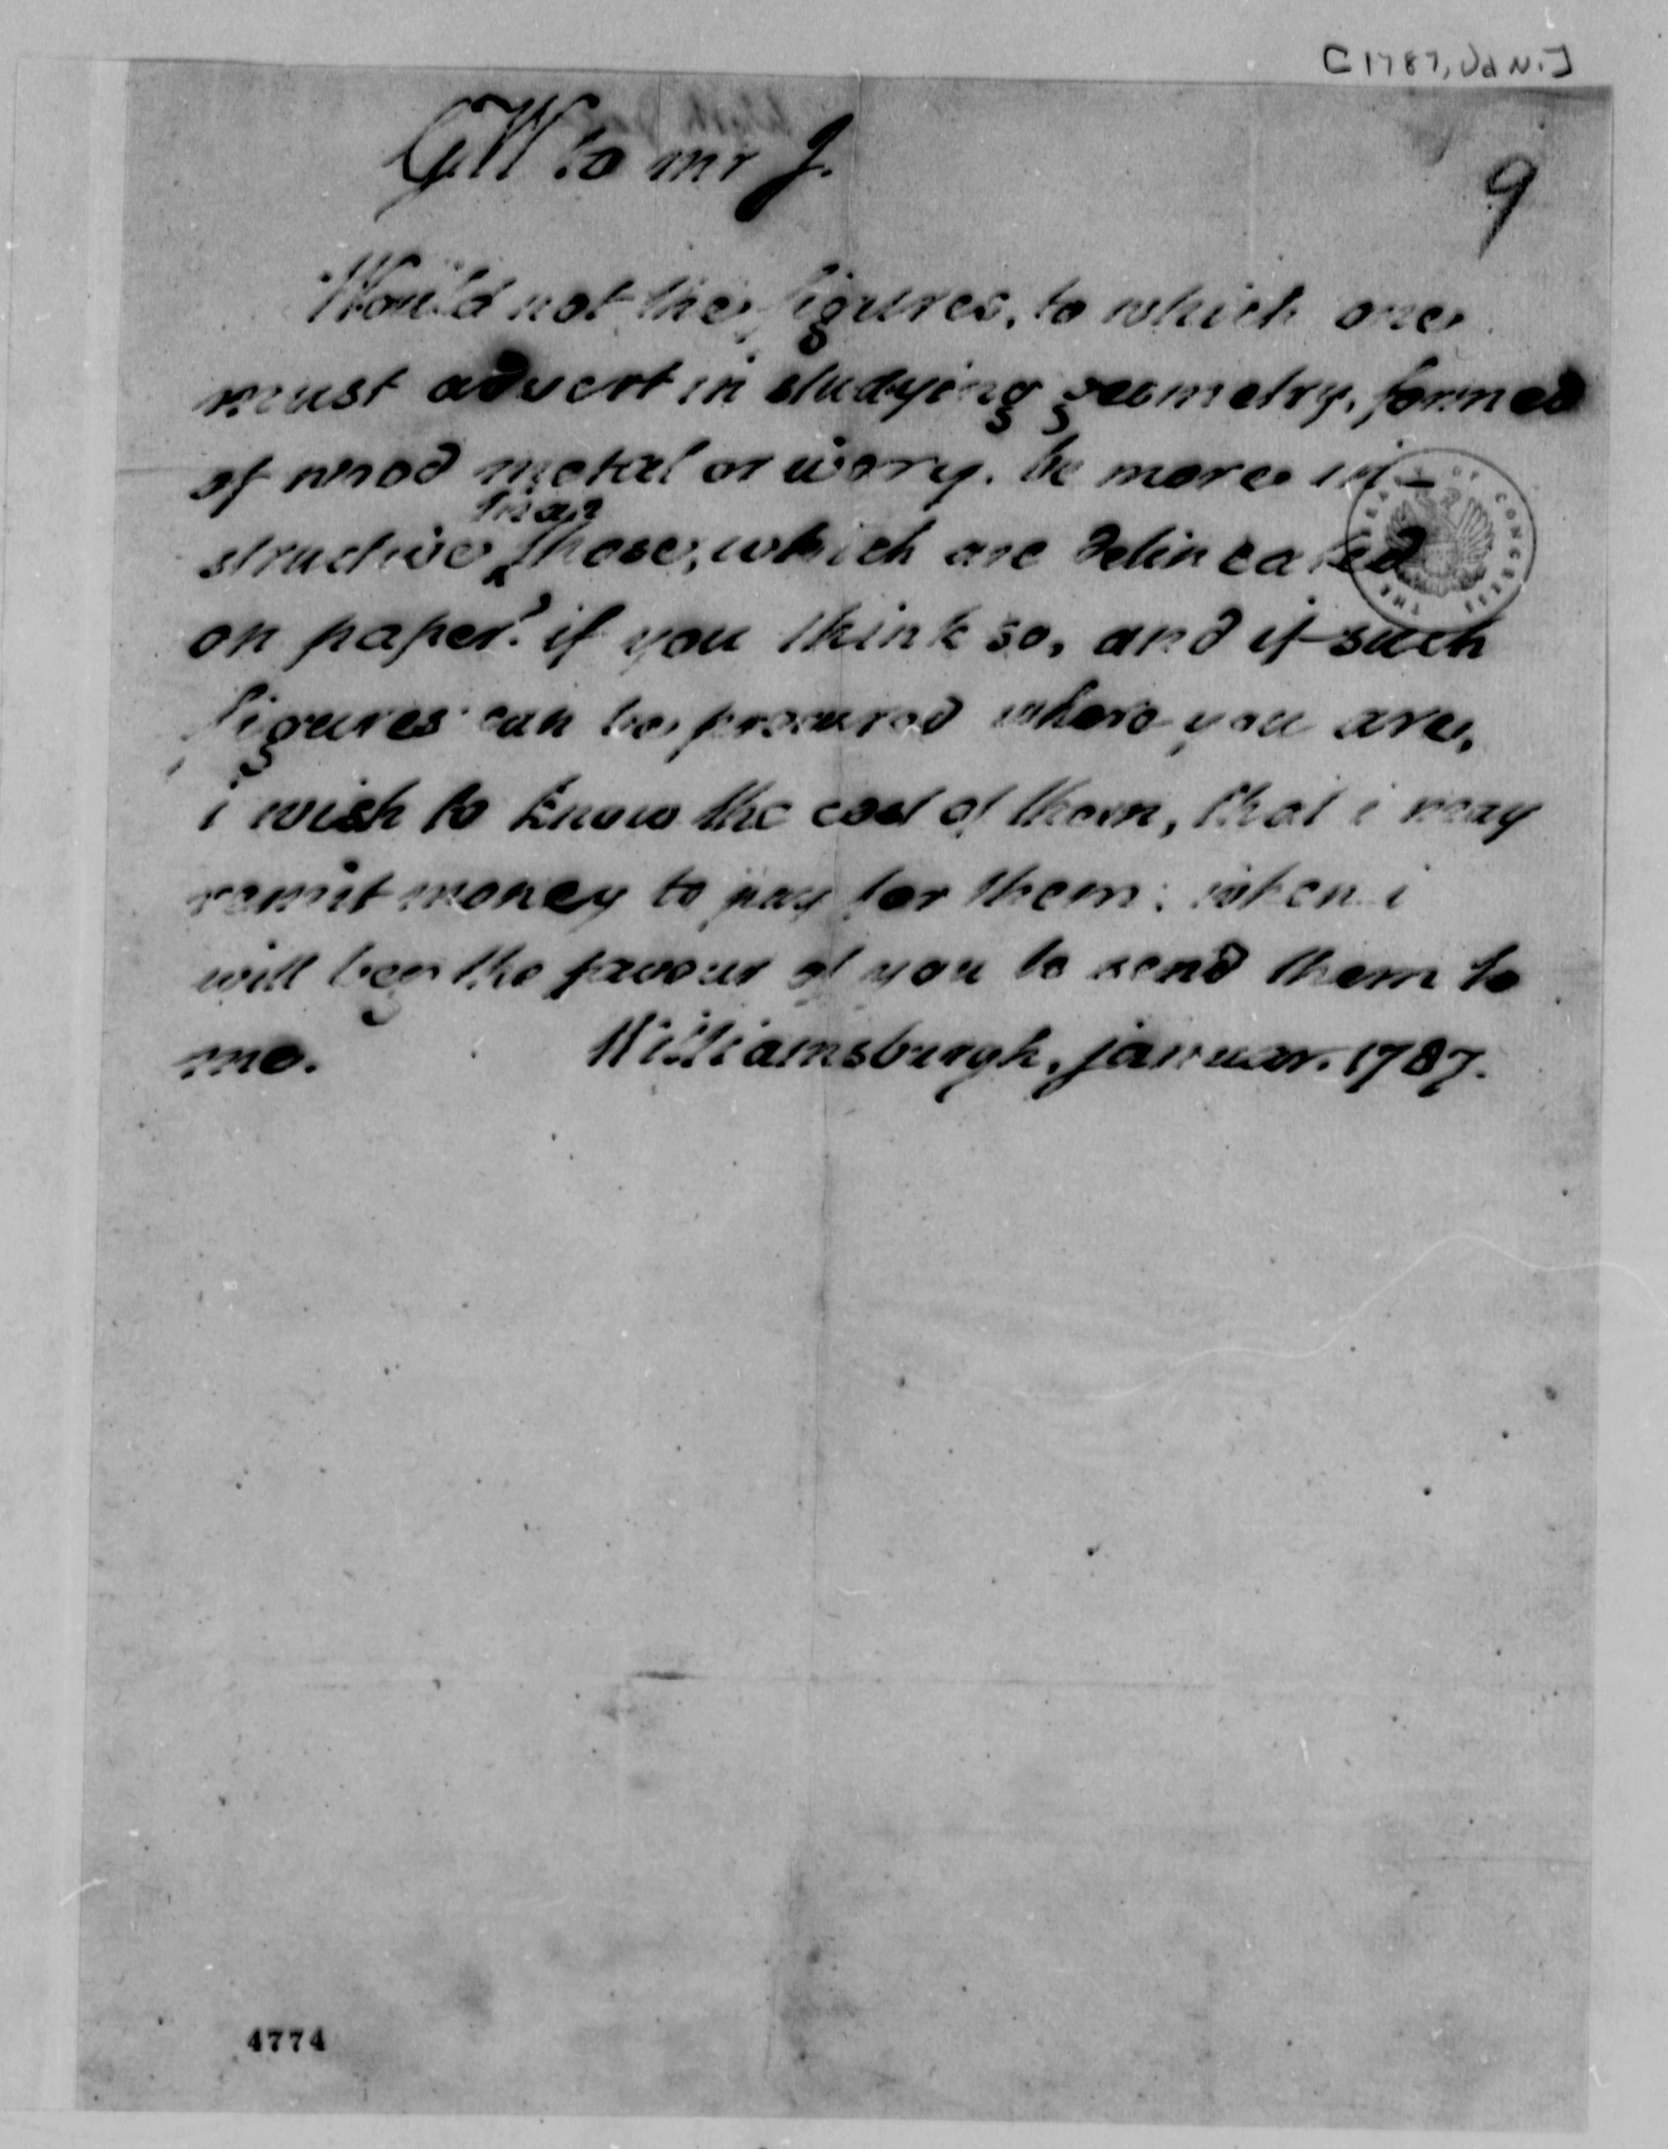 [1787, Jan.]
GW to mr J.
9
Would not the figures, to which one
must advert in studying geometry, formed
of wood metal or ivory, be more in-
than
structive those, which are delineated
on paper? if you think so, and if such
figures can be procured where you are,
i wish to know the cost of them, that i may
remit money to pay for them: when i
will beg the favour of you to send them to
me. Williamsburgh, januar. 1787.
THE LIBRARY OF CONGRESS
4774